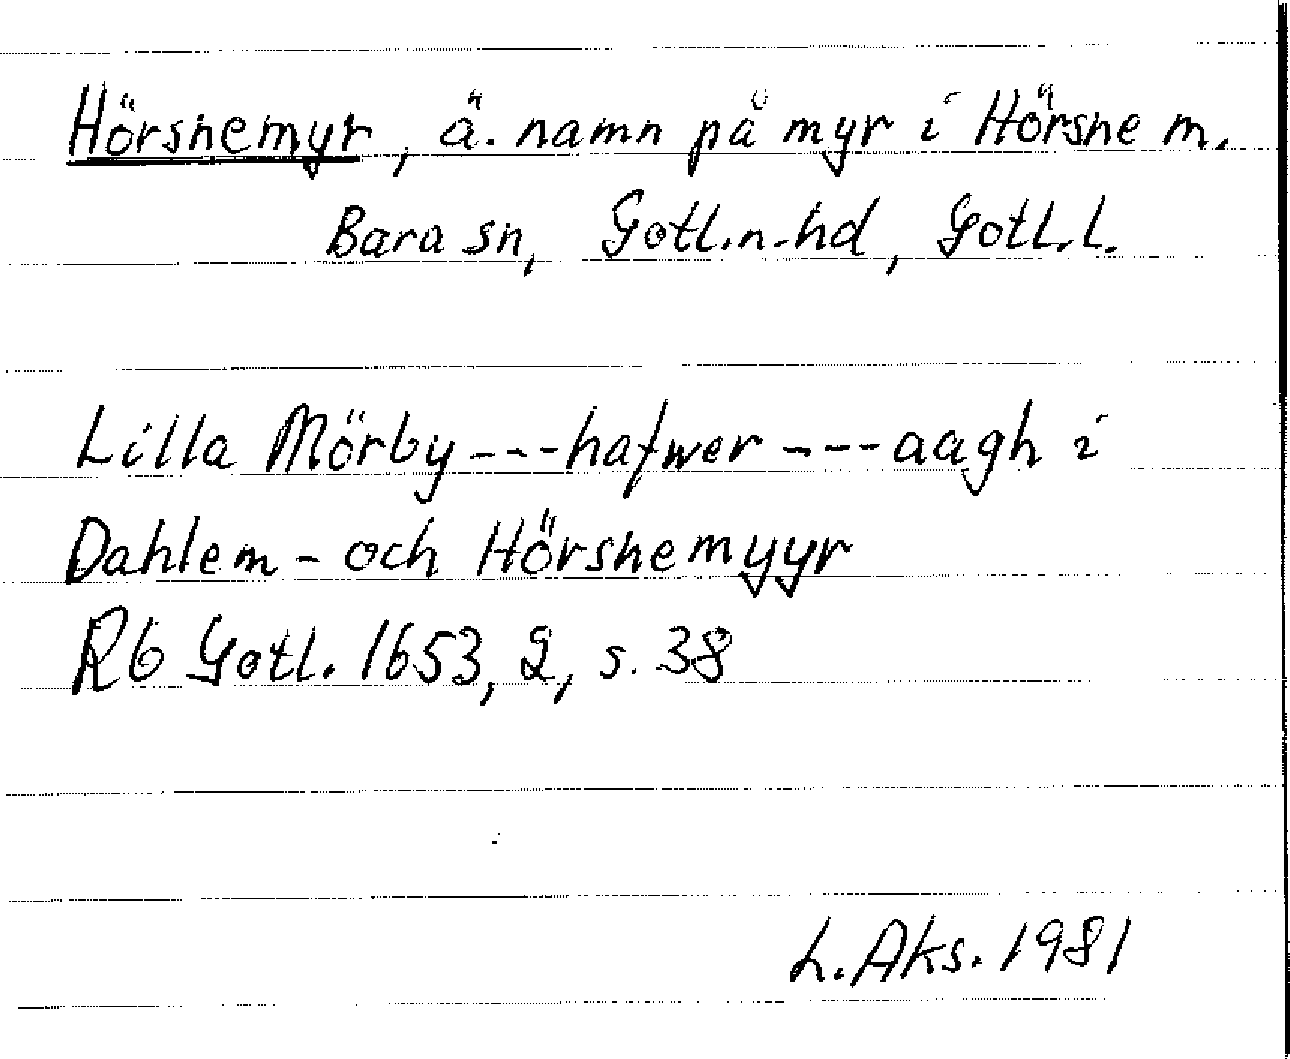 Hörsnemyr, ä. namn på myr i Hörsne m.
Bara sn, Gotl.n.hd, Gotl.l.
Lilla Mörby---hafwer---aagh i
Dahlem- och Hörsnemyyr
Rb Gotl. 1653, 2, s. 38
L. Aks. 1981